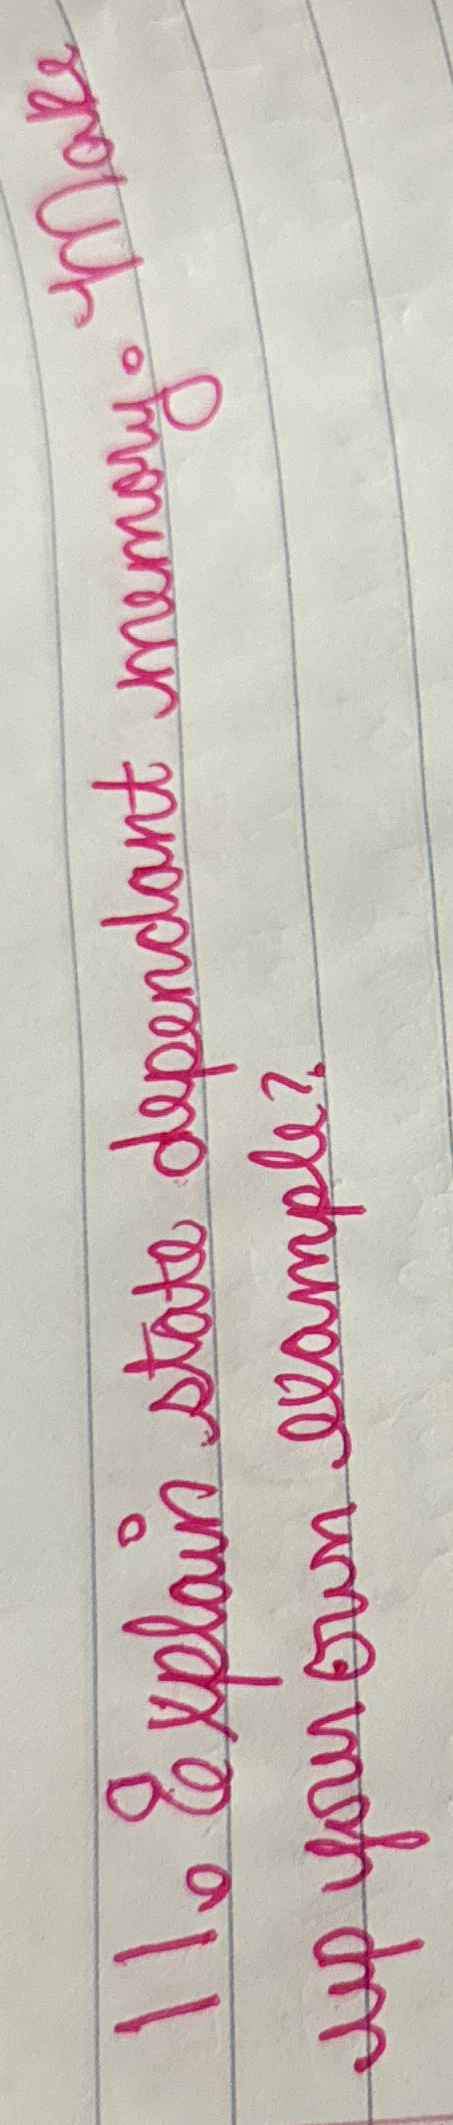 11. Explain state dependant memory. Make
up your own example?